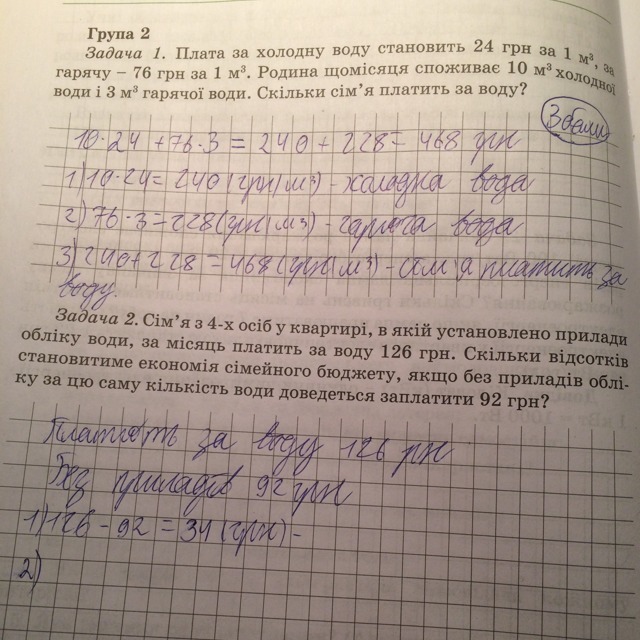 Група 2
Задача 1. Плата за холодну воду становить 24 грн за 1 м³, за
гарячу – 76 грн за 1 м³. Родина щомісяця споживає 10 м³ холодної
води і 3 м³ гарячої води. Скільки сім'я платить за воду?
3 бали
10·24 +76·3 = 240 + 228 = 468 грн
1) 10·24 = 240 (грн/м³) - холодна вода
2) 76·3 = 228 (грн/м³) - гаряча вода
3) 240+228 = 468 (грн/м³) - сім'я платить за
воду.
Задача 2. Сім'я з 4-х осіб у квартирі, в якій установлено прилади
обліку води, за місяць платить за воду 126 грн. Скільки відсотків
становитиме економія сімейного бюджету, якщо без приладів облі-
ку за цю саму кількість води доведеться заплатити 92 грн?
Платить за воду 126 грн
Без приладів 92 грн
1) 126 - 92 = 34 (грн) -
2)